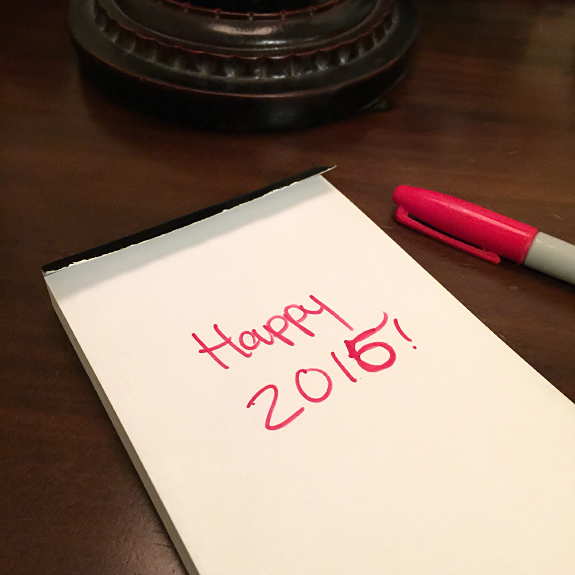 Happy
2016!